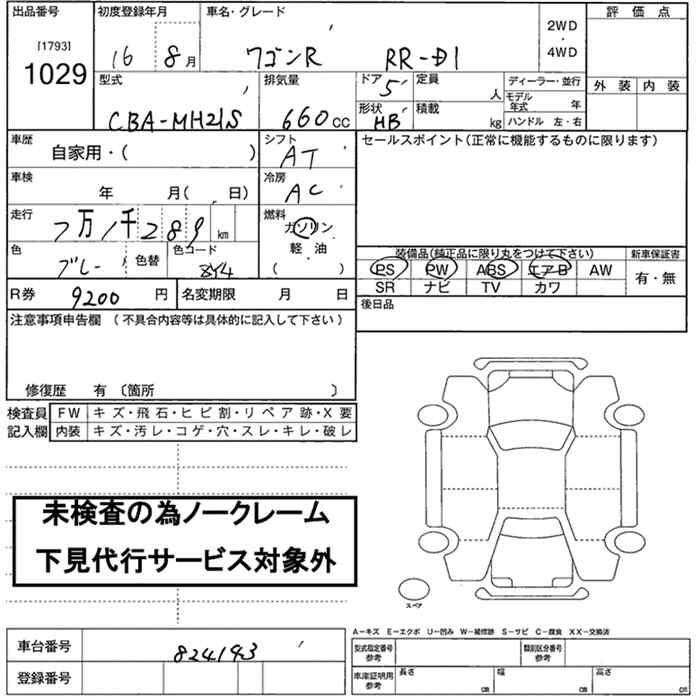 出品番号
[1793]
1029
初度登録年月
16 8月
車名・グレード
ワゴンR RR-DI
2WD
・
4WD
評価点
外装 内装
型式
CBA-MH21S
排気量
660cc
ドア 5
形状 HB
定員 人
積載 kg
ディーラー・並行
モデル年式 年
ハンドル 左・右
車歴
自家用・( )
シフト
AT
セールスポイント(正常に機能するものに限ります)
車検
年 月( 日)
冷房
AC
走行
7万1千289km
燃料
ガソリン
軽・油
( )
色
ブルー
色替
色コード
装備品(純正品に限り丸をつけて下さい)
新車保証書
PS PW ABS エアB AW
有・無
SR ナビ TV カワ
R券 9200円
名変期限 月 日
後日品
注意事項申告欄(不具合内容等は具体的に記入して下さい)
修復歴 有〔箇所 〕
検査員記入欄
FW キズ・飛石・ヒビ割・リペア跡・X要
内装 キズ・汚レ・コゲ・穴・スレ・キレ・破レ
未検査の為ノークレーム
下見代行サービス対象外
スペア
A-キズ E-エクボ U-凹み W-補修跡 S-サビ C-腐食 XX-交換済
車台番号
824193
登録番号
型式指定番号
参考
類別区分番号
参考
車庫証明用
参考
長さ cm
幅 cm
高さ cm